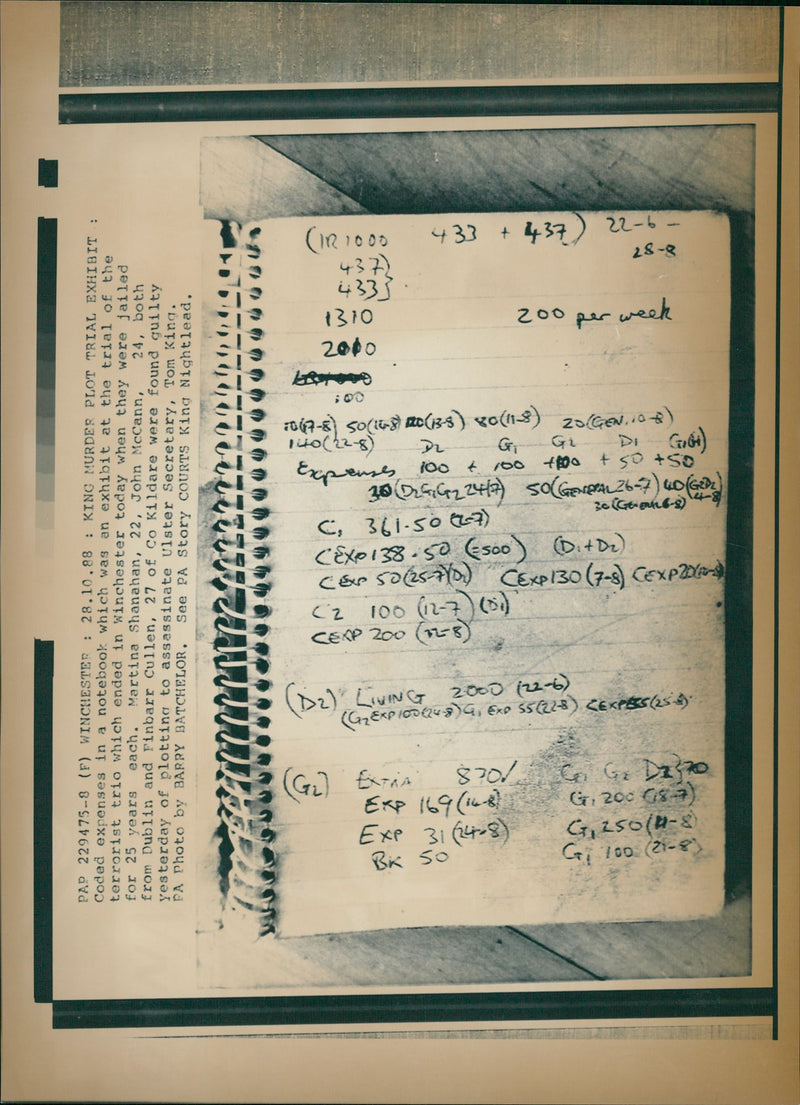 PAP 229475-8 (F) WINCHESTER : 28.10.88 : KING MURDER PLOT TRIAL EXHIBIT :
Coded expenses in a notebook which was an exhibit at the trial of the
terrorist trio which ended in Winchester today when they were jailed
for 25 years each. Martina Shanahan, 22, John McCann, 24, both
from Dublin and Finbarr Cullen, 27 of Co Kildare were found guilty
yesterday of plotting to assassinate Ulster Secretary, Tom King.
PA Photo by BARRY BATCHELOR. See PA Story COURTS King Nightlead.
(IR 1000 433 + 437) 22-6 -
28-8
437)
433}
1310 200 per week
2000
100
50(16-8) (13-8) 80(11-8) 20(GEN. 10-8)
140(22-8) D2 G1 G2 D1
Expenses 100 + 100 +100 + 50 +50
30(D2G1G2 24/7) 50(GENERAL 26-7) 40(G2D2
4-8)
30(General 6-8)
C1 361.50
CEXP 138.50 (=500) (D1+D2)
CEXP 50(25-7)(D1) CEXP 130(7-8) CEXP 20
C2 100 (12-7)(D1)
CEXP 200 (12-8)
(D2) LIVING 2000 (22-6)
(G2EXP 100(24-8) G1 EXP 55(22-8) CEXP (25-8)
(G2) EXTRA 870/ G1 G2 D2}70
EXP 169(16-8) G1 200 (18-7)
EXP 31(24-8) G1 250
BK 50 G1 100 (21-8)